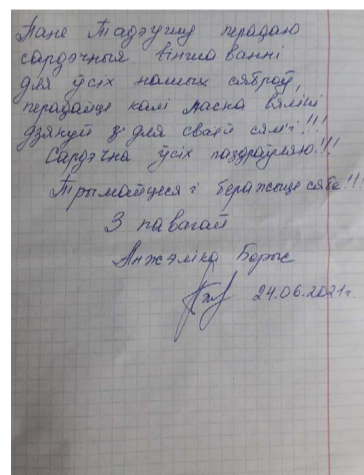 Пане Тадэушу перадаю
сардэчныя віншаванні
для ўсіх нашых сяброў,
перадайце калі ласка вялікі
дзякуй для сваей сям'і!!!
Сардэчна ўсіх паздраўляю!!!
Трымайцеся і беражыце сябе!!!
З павагай
Анжэліка Борыс
24.06.2021г.